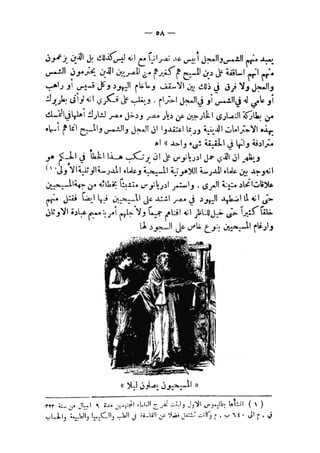 — ٥٨ —
يعبد منهم الشمس والعجل أبيس عد نصرانياً مع انه ليس كذلك بل الذين يزعمون
منهم انهم اساقفة على دين المسيح هم كغيرهم من المصريين الذين يحترمون الشمس
والعجل ولا فرق في ذلك بين الاسقف وحاخام اليهود وكل قسيس أو راهب
أو عامي له في الشمس أو في العجل احترام . ويغلب على فكري انه لو أتى بطريرك
من بطاركة النصارى الخارجين عن ديار مصر ودخل مصر لشارك أهلها في التمسك
بهذه الاحترامات الدينية وربما اعتقدوا ان العجل والشمس والمسيح انما هم أسماء
مترادفة وانها في الحقيقة شيء واحد » اه
ويظهر ان الذي حمل ادريانوس على ان يرتكب هذا الخطأ في الحكم هو
انه وجد بين علماء المدرسة اللاهوتية المسيحية وعلماء المدرسة الوثنية الاولى (١)
علاقات اتحاد متينة العرى . واستمر ادريانوس متشبثاً بخطائه من جهة المسيحيين
حتى انه لما اضطهد اليهود في مصر اشتد على المسيحيين فيها ايضاً فقتل منهم
خلقاً كثيراً حتى خيل للناظر انه افناهم جميعاً ولأجلهم أمر بتعميم عبادة الاوثان
وارغام المسيحيين بنوع خاص على السجود لها
« المسيحيون يصلون ليلا »
( ١ ) انشأها بطليموس الاول ولبثت تخرج العلماء المجتهدين مدة ٩ اجيال من سنة ٣٢٣
ق . م الى ٦٤٠ ب . م وكانت تشتغل فضلا عن الفلسفة في الطب والكيميا والطبيعة والحساب